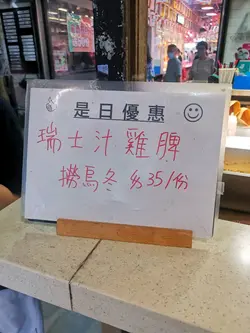 是日優惠
瑞士汁雞脾
撈烏冬 $35/份